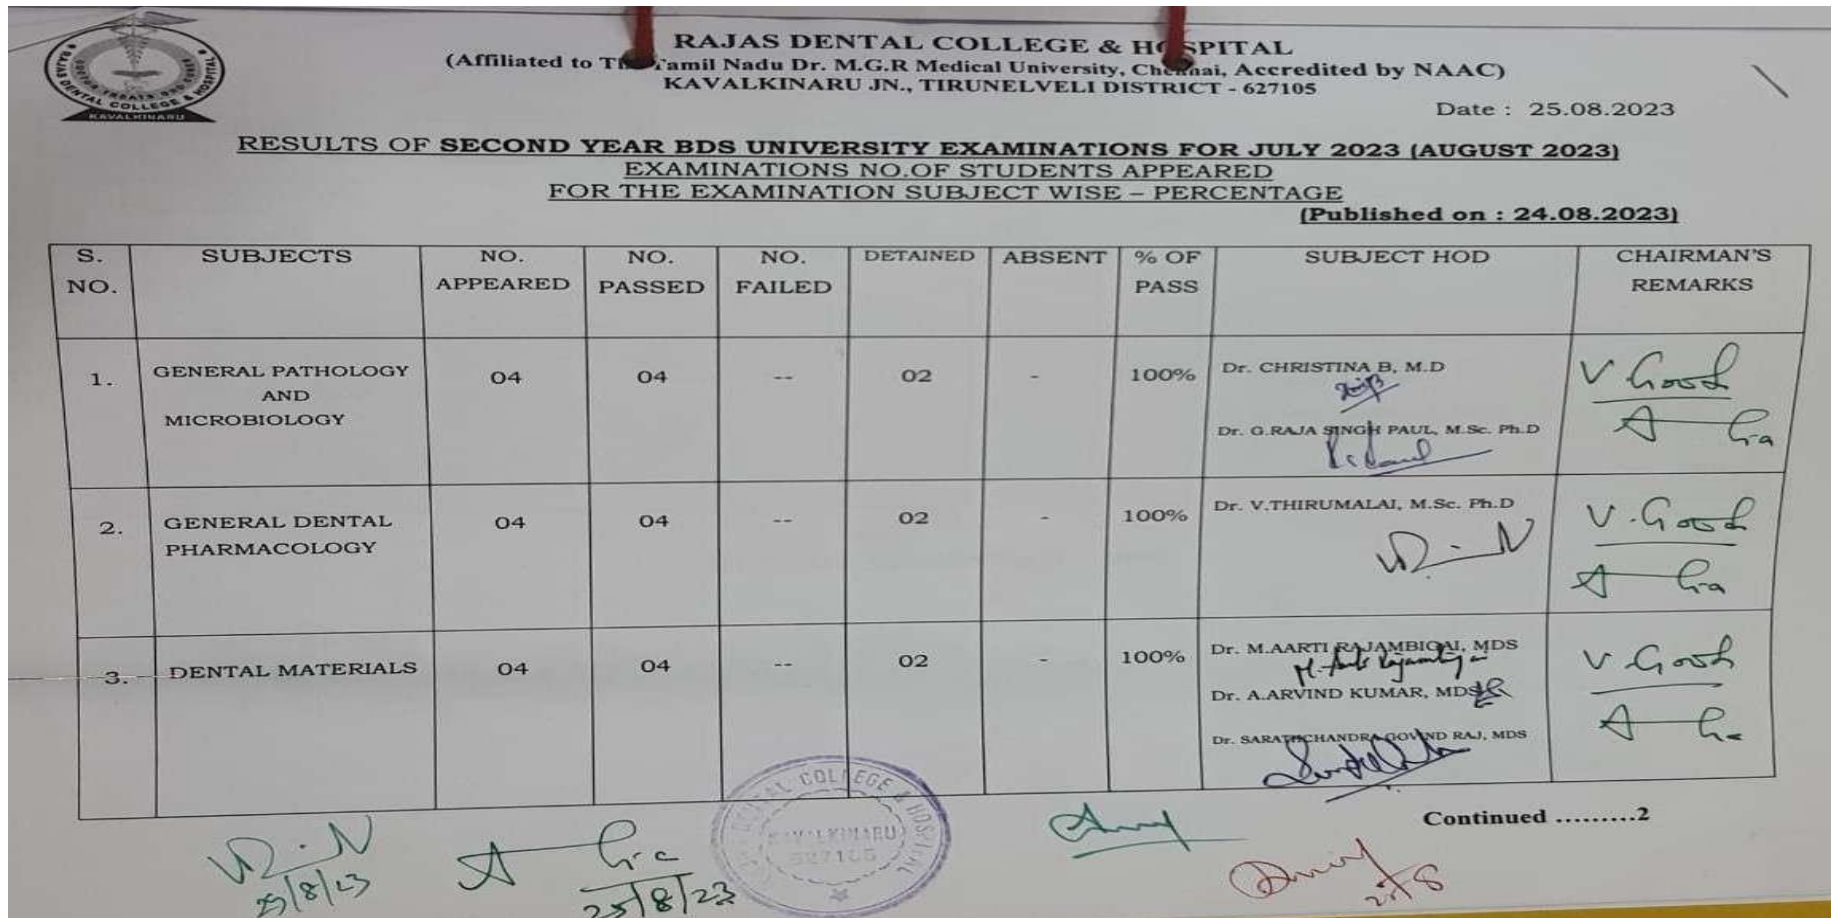 RAJAS DENTAL COLLEGE & HOSPITAL
KAVALKINARU
RAJAS DENTAL COLLEGE & HOSPITAL
(Affiliated to The Tamil Nadu Dr. M.G.R Medical University, Chennai, Accredited by NAAC)
KAVALKINARU JN., TIRUNELVELI DISTRICT - 627105
Date : 25.08.2023
RESULTS OF SECOND YEAR BDS UNIVERSITY EXAMINATIONS FOR JULY 2023 (AUGUST 2023)
EXAMINATIONS NO.OF STUDENTS APPEARED
FOR THE EXAMINATION SUBJECT WISE – PERCENTAGE
(Published on : 24.08.2023)
S. NO. SUBJECTS NO. APPEARED NO. PASSED NO. FAILED DETAINED ABSENT % OF PASS SUBJECT HOD CHAIRMAN'S REMARKS
1. GENERAL PATHOLOGY 04 04 -- 02 - 100% Dr. CHRISTINA B, M.D V Good
AND
MICROBIOLOGY
Dr. G.RAJA SINGH PAUL, M.Sc. Ph.D
2. GENERAL DENTAL 04 04 -- 02 - 100% Dr. V.THIRUMALAI, M.Sc. Ph.D V. Good
PHARMACOLOGY
3. DENTAL MATERIALS 04 04 -- 02 - 100% Dr. M.AARTI RAJAMBIGAI, MDS V. Good
Dr. A.ARVIND KUMAR, MDS
Dr. SARATHCHANDRA GOVIND RAJ, MDS
Continued .........2
DENTAL COLLEGE & HOSPITAL
KAVALKINARU
627105
25/8/23
25/8/23
25/8